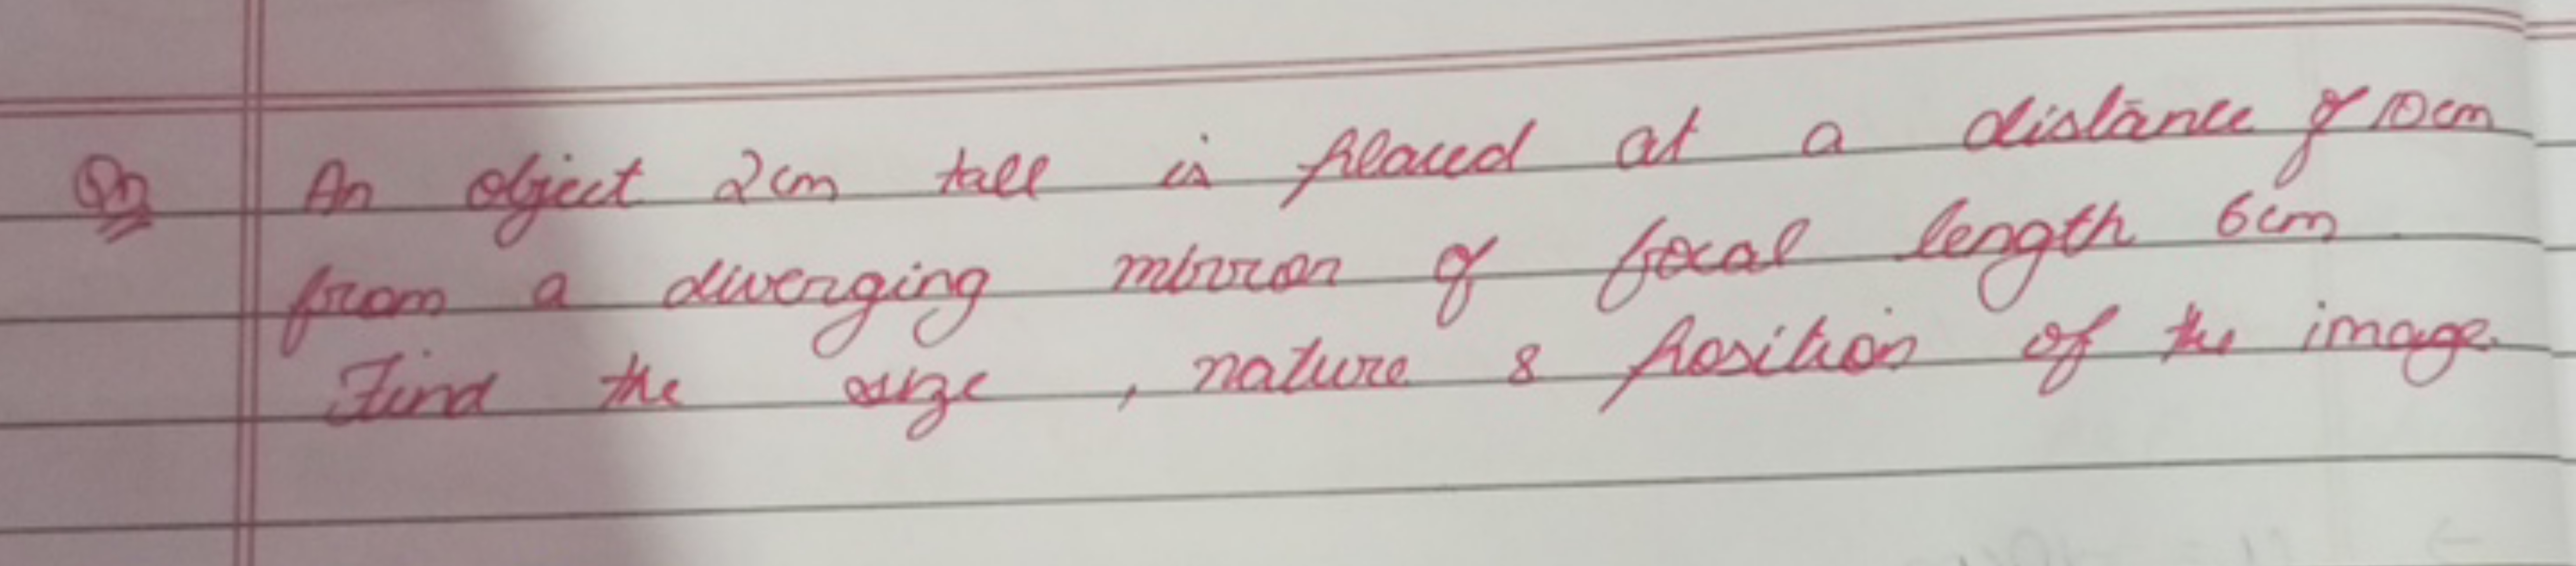 Qn An object 2cm tall is placed at a distance of 10cm
from a diverging mirror of focal length 6cm
Find the size, nature & position of the image.